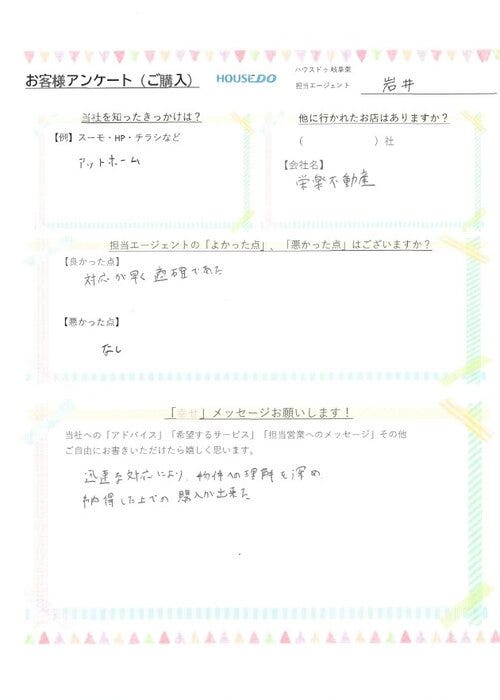 お客様アンケート（ご購入）
HOUSEDO
ハウスドゥ 岐阜東
担当エージェント 岩井
当社を知ったきっかけは？
【例】スーモ・HP・チラシなど
アットホーム
他に行かれたお店はありますか？
（ ）社
【会社名】
栄楽不動産
担当エージェントの「よかった点」、「悪かった点」はございますか？
【良かった点】
対応が早く 適確であった
【悪かった点】
なし
「幸せ」メッセージお願いします！
当社への「アドバイス」「希望するサービス」「担当営業へのメッセージ」その他
ご自由にお書きいただけたら嬉しく思います。
迅速な対応により、物件への理解を深め
納得した上での購入が出来た